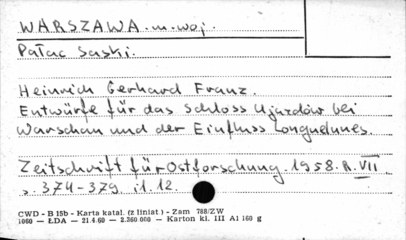 WARSZAWA. m. woj.
Pałac Saski.
Heinrich Gerhard Franz.
Entwürfe für das Schloss Ujazdów bei
Warschau und der Einfluss Longuelunes.
Zeitschrift für Ostforschung 1958. R. VII
s. 374-379. il. 12.
CWD - B 15b - Karta katal. (z liniat) - Zam 788/ZW
1060 — ŁDA — 21.4.60 — 2.360.000 — Karton kl. III A1 160 g